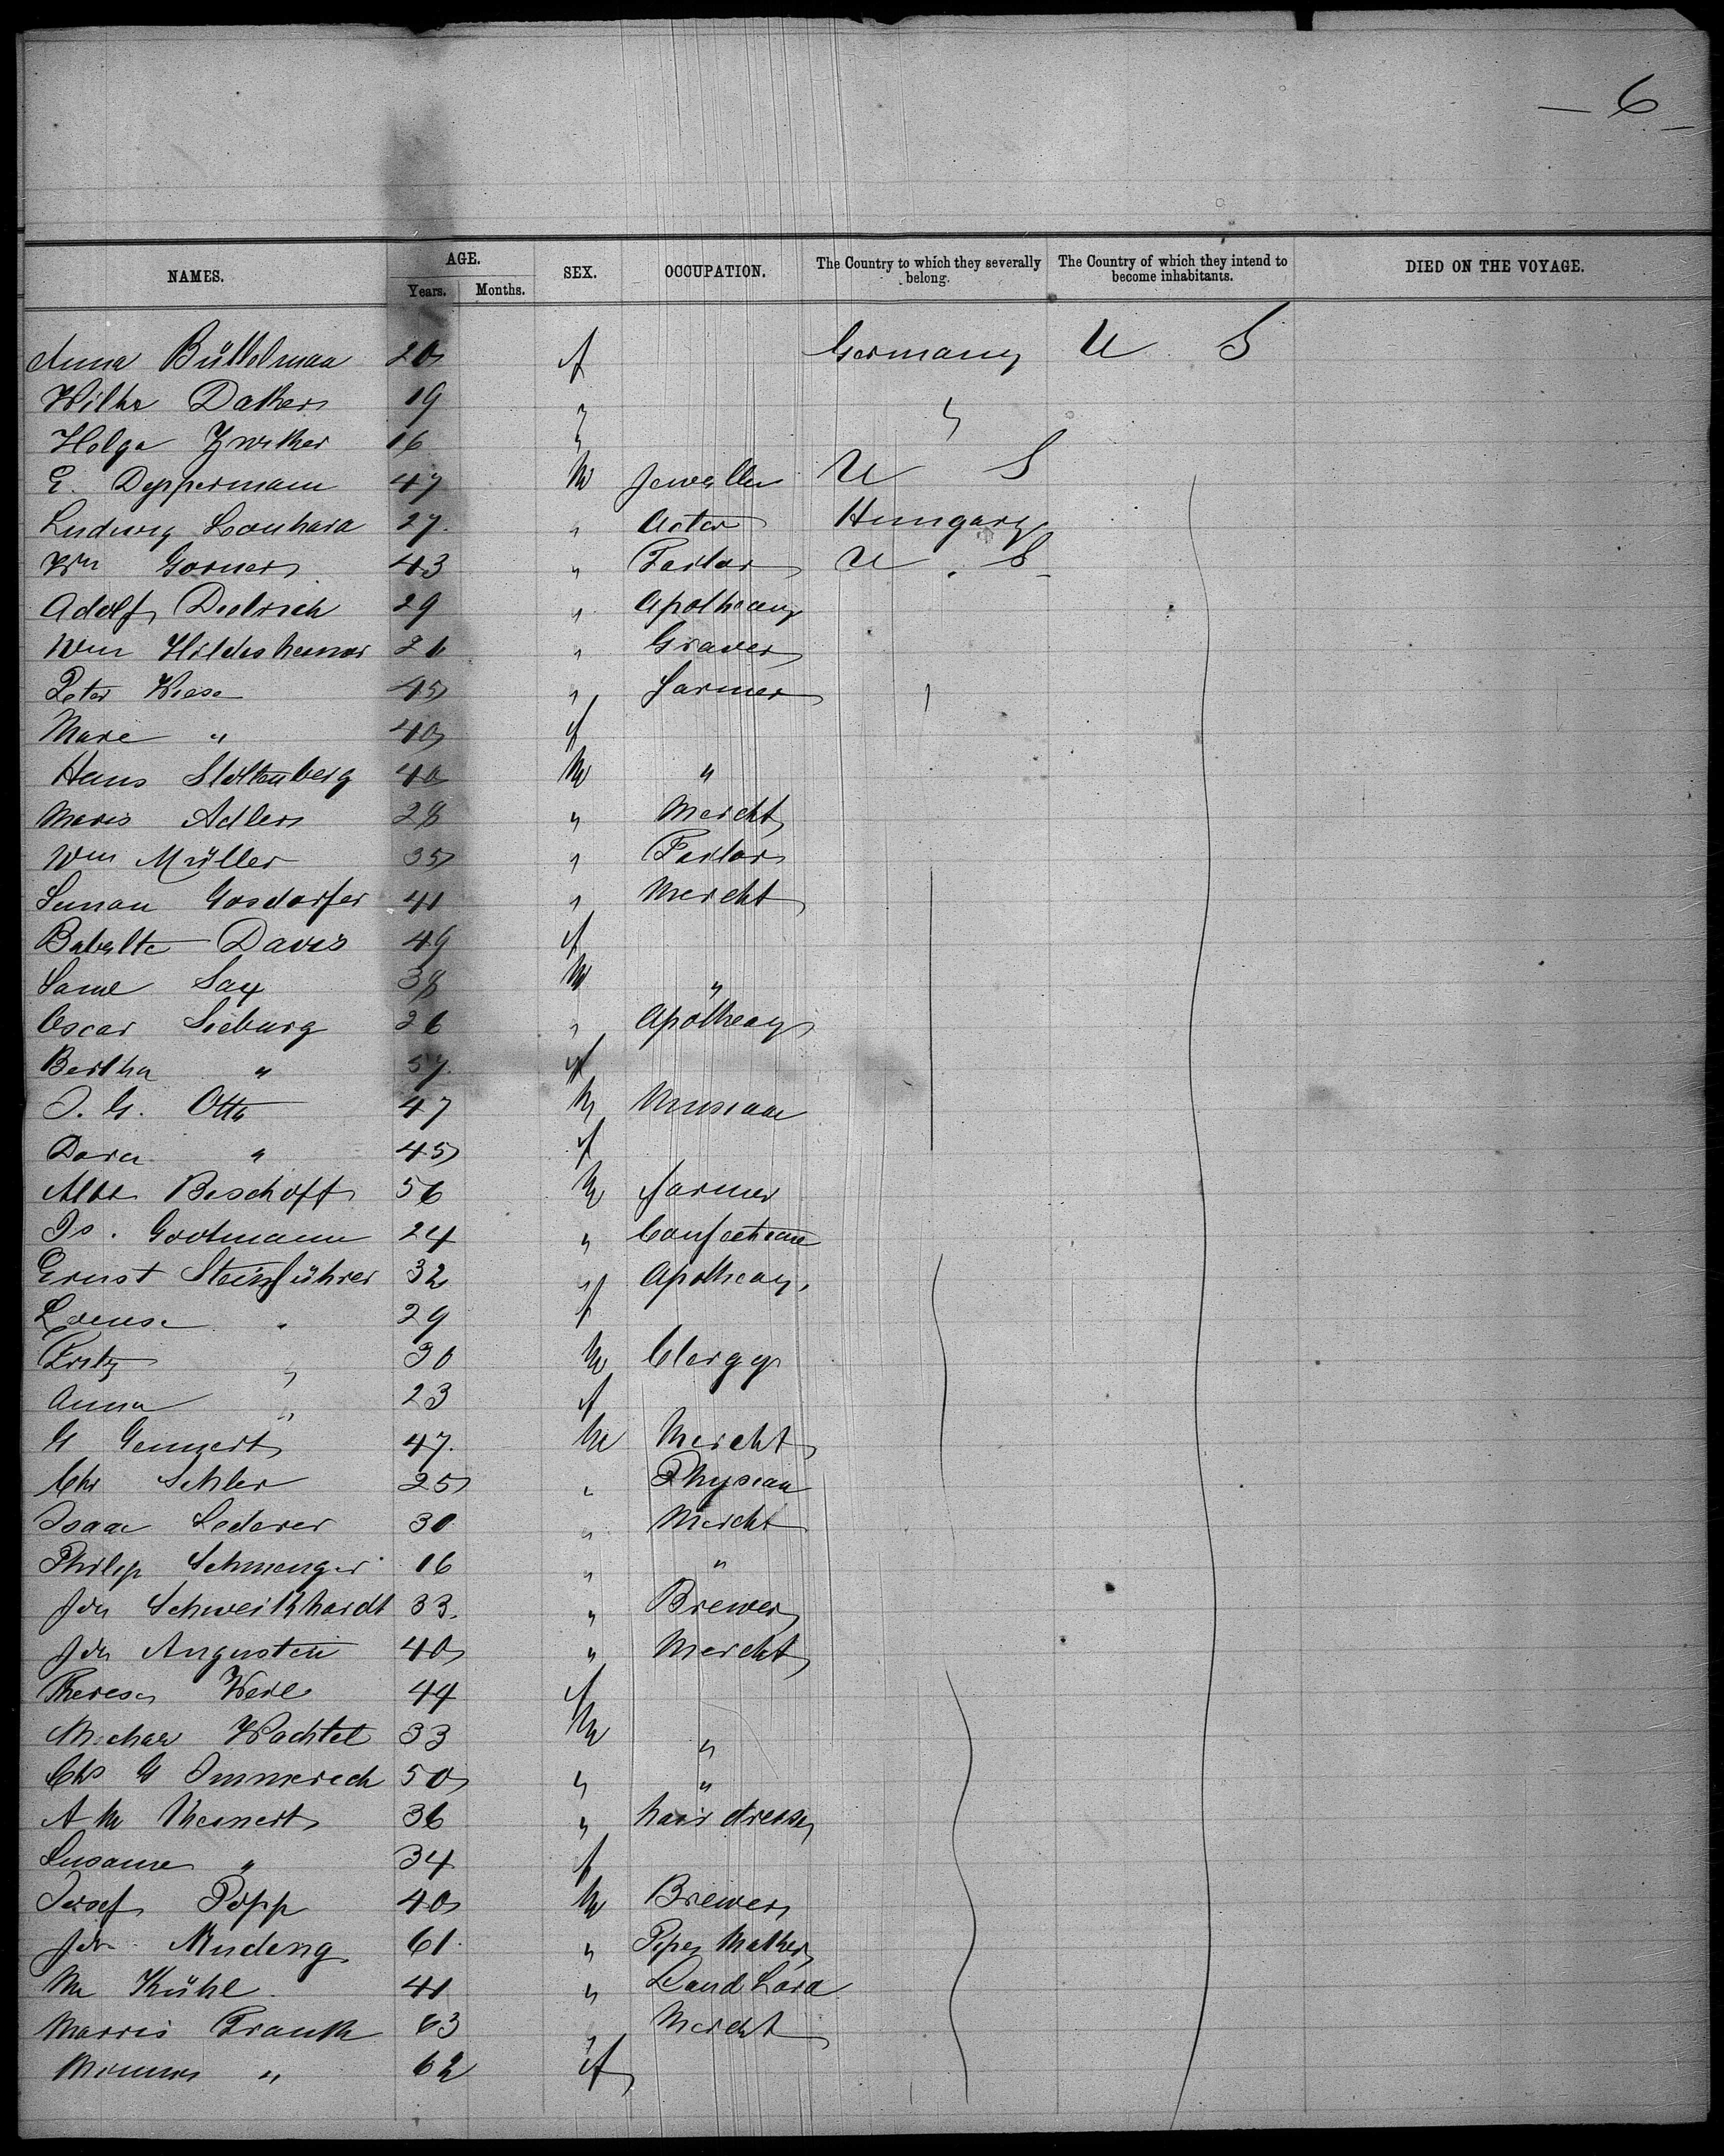 — 6 —
NAMES. AGE. SEX. OCCUPATION. The Country to which they severally belong. The Country of which they intend to become inhabitants. DIED ON THE VOYAGE.
Years. Months.
Anna Büttelman 20 f Germany U S
19 " "
Helga 16 "
E. Deppermann 47 M Jeweller U S
Ludwig 27. " Actor Hungary
Wm Gorner 43 " Tailor U. S.
Adolf Diedrich 29 " Apothecary
Wm Hildesheimer 21 " Graver
Peter Wiese 45 " farmer "
Marie " 40 f
Hans Stoltenberg 40 M "
Moris Adler 28 " Mercht
Wm Müller 35 " Tailor
Gosdorfer 41 " Mercht
Babette Davis 49 f
Saml Sax 38 M "
Oscar Sieburg 26 " Apotheay
Bertha " 57. f
J. G. Otto 47 M Musiaan
Dora " 45 f
Bischoff 56 M farmer
Is. Gootmann 24 "
Ernst Steinführer 32 " Apotheay.
Louise " 29 f
Fritz " 30 M Clergy
Anna " 23 f
G Gennert 47. M Mercht
Chr 25 " Physian
Isaac Lederer 30 " Mercht
Philip Schmenger 16 " "
Jon Schweikhardt 33. " Brewer
Jon Augustin 40 " Mercht
Theresa Weil 44 f
Michael Wachtel 33 M "
Chs G Immerich 50 " "
A M 36 " hair dresser
Susanne " 34 f
Josef Popp 40 M Brewer
Mudeng 61. " Piper Mather
M Kühl 41 " Land Lord
Morris Frank 63 " Mercht
" 62 f